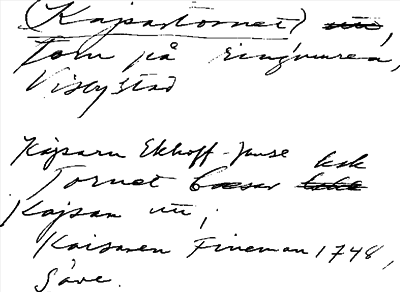 (Kajsartornet)
Torn på ringmuren,
Visby stad
Kajsarn Ekhoff - ksk
Tornet
Kajsan
Kaisaren Fineman 1748,
Säve.